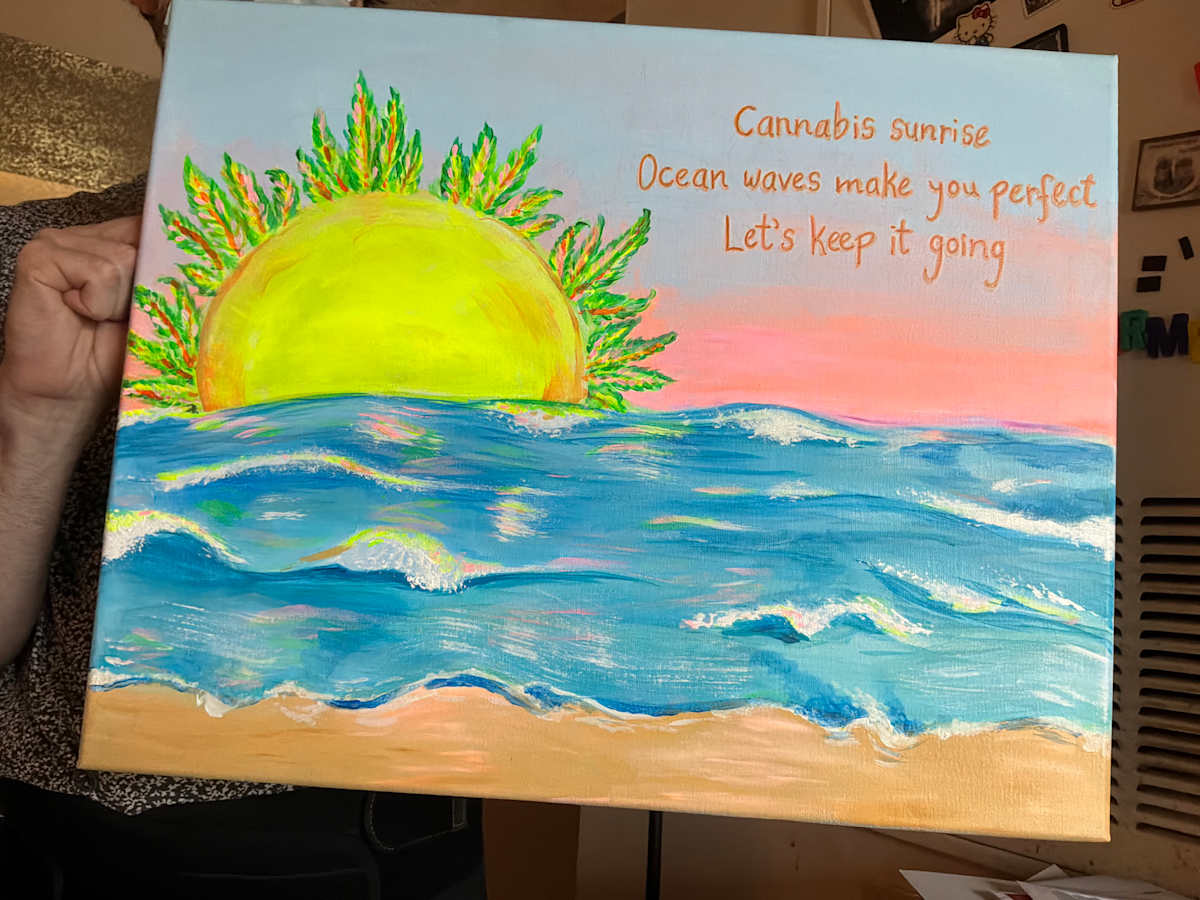 Cannabis sunrise
Ocean waves make you perfect
Let's keep it going
RM